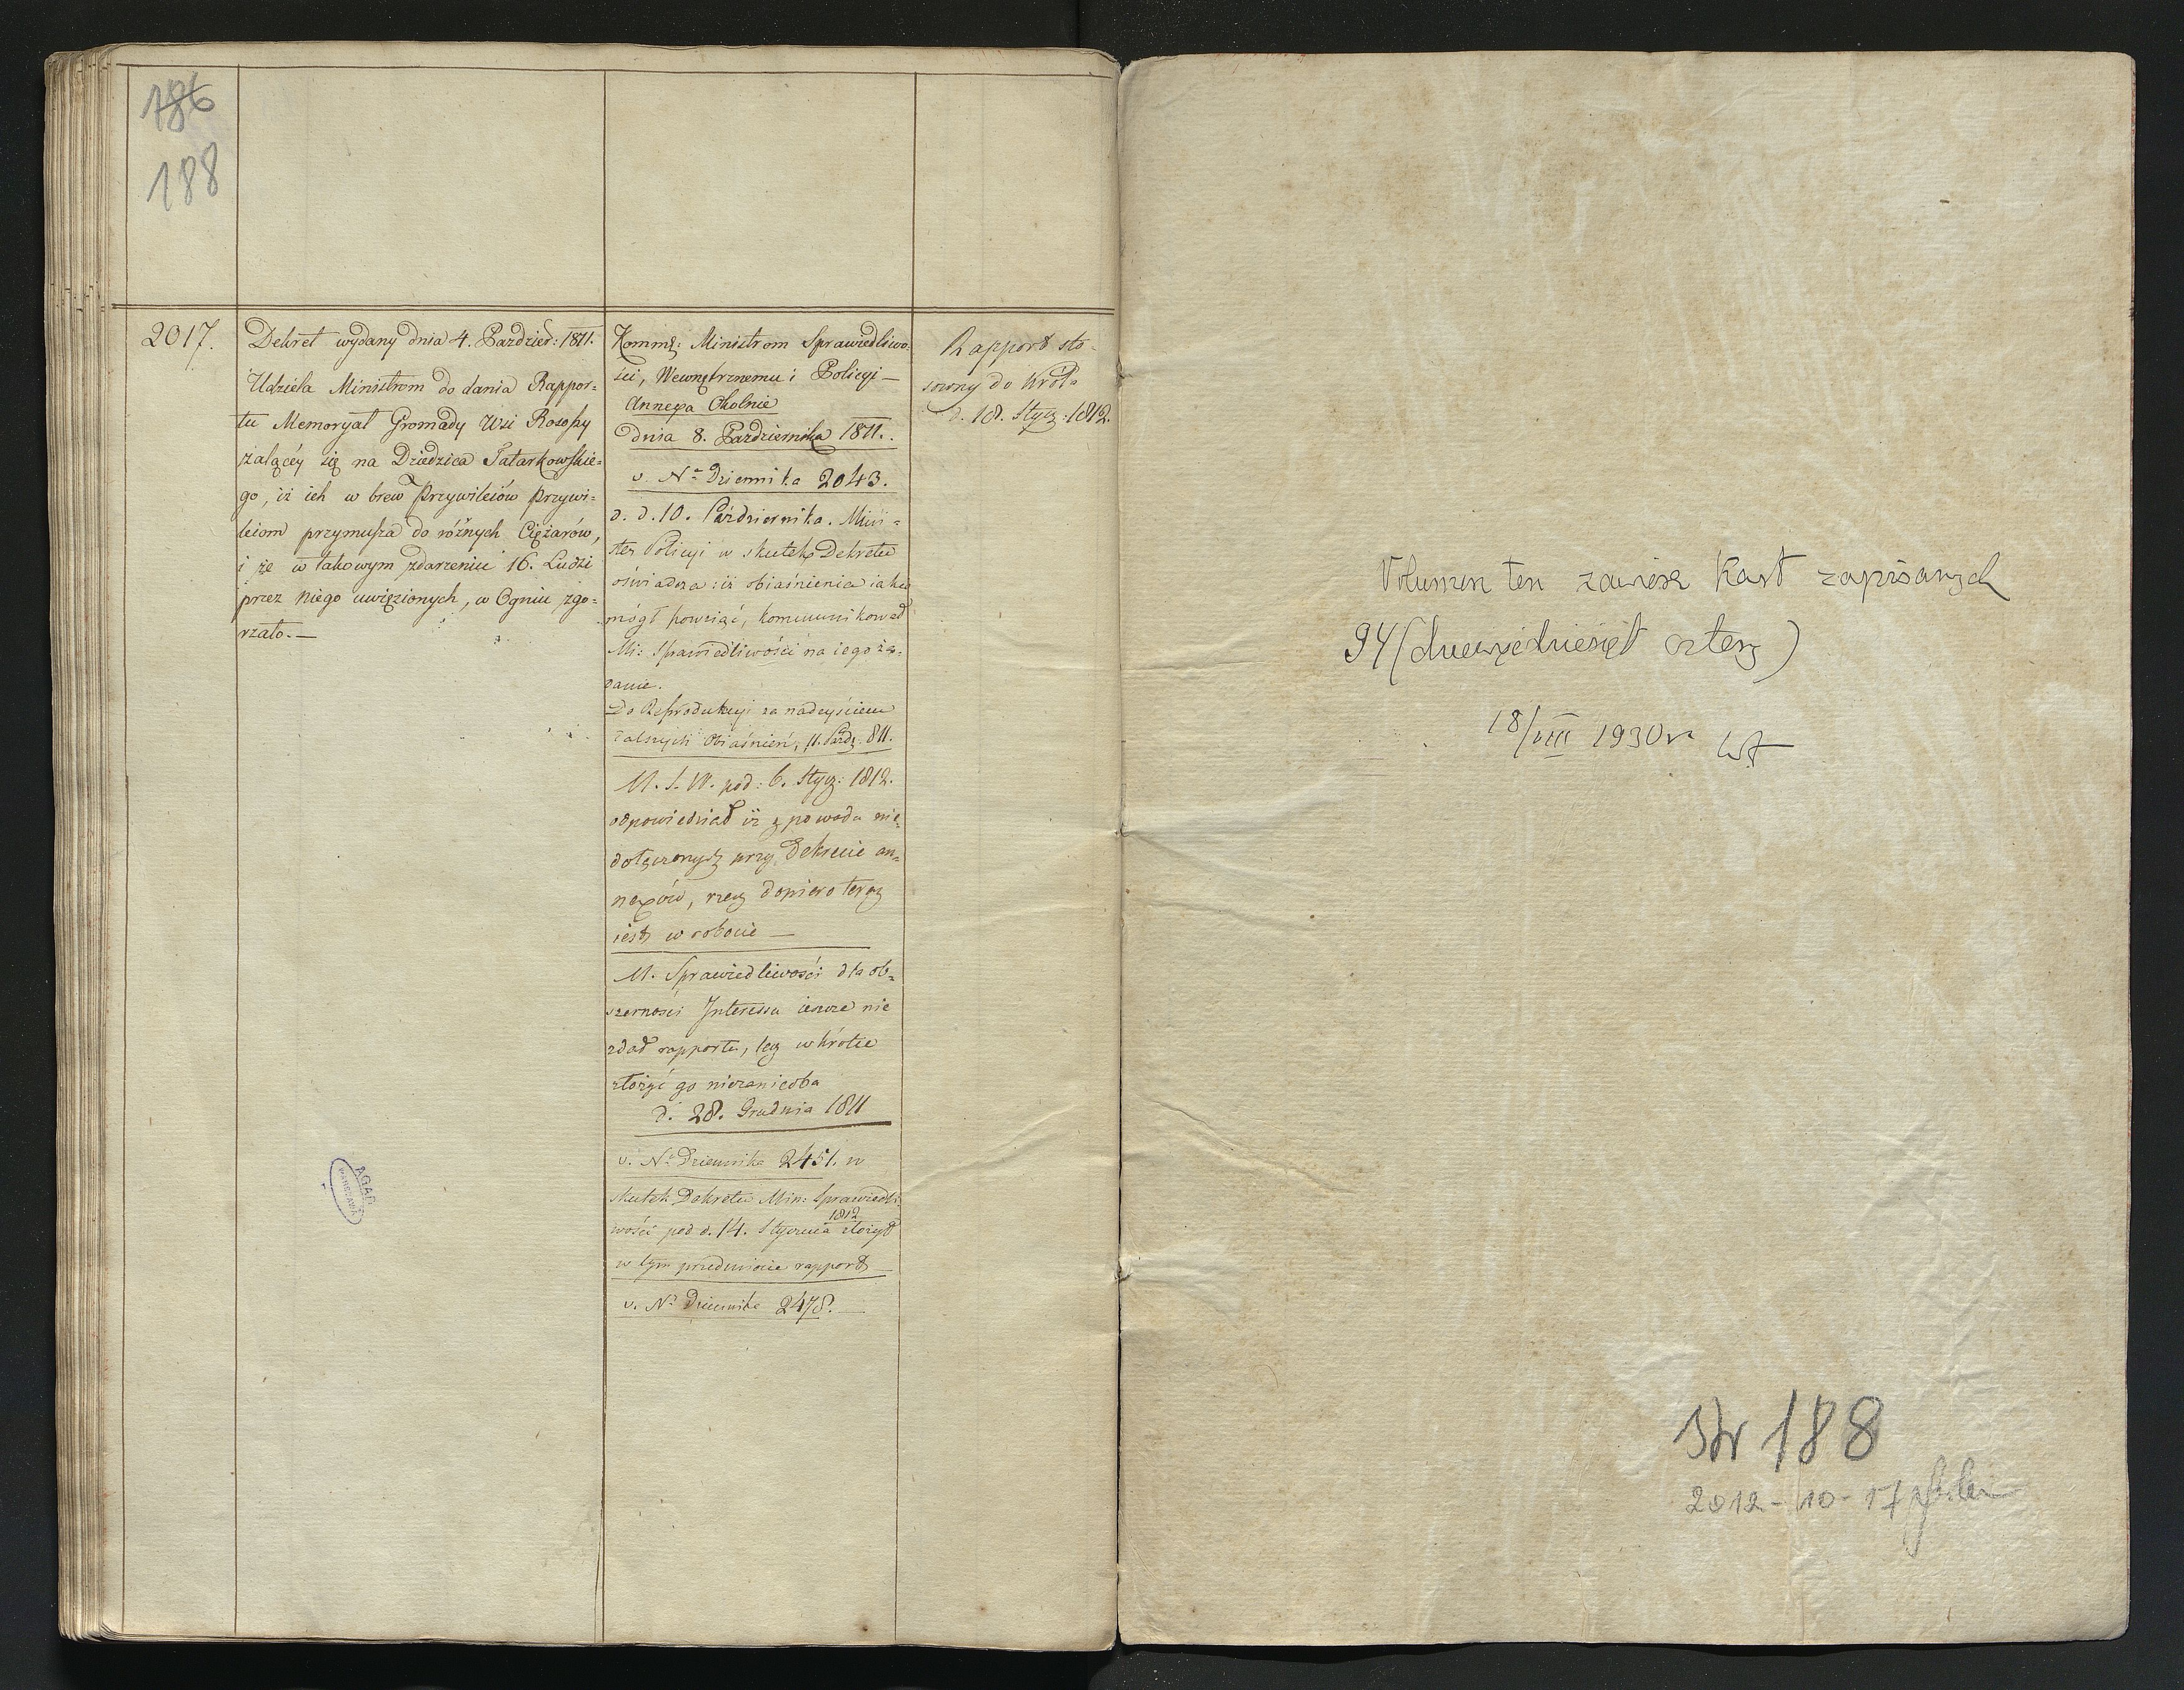 186
188
2017.
Dekret wydany dnia 4. Paździer: 1811.
Udziela Ministrom do dania Rappor=
tu Memoryał Gromady Wsi Rosochy
żalącéy się na Dziedzica Tatarkowskie=
go, iż ich w brew Przywileiów przywi=
leiom przymusza do różnych Ciężarów,
i że w takowym zdarzeniu 16. Ludzi
przez niego uwięzionych, w Ogniu zgo=
rzało. —
Kommż: Ministrom Sprawiedliwo:
ści, Wewnętrznemu i Policyi —
Annexa Okolnie
Dnia 8. Października 1811.
v. No Dziennika 2043.
d. d. 10. Października. Mini=
ter Policyi w skutek Dekretu
oświadcza: iż obiaśnienia iakie
mógł powziąć, kommunikował
Mi: Sprawiedliwości na iego żą=
danie.
Do Reprodukcyi za nadeyściem
dalszych Obiaśnień, 11. Paźdz. 811.
M. S. W. pod: 6. Stycz: 1812.
odpowiedział iż z powodu nie=
dołączonych przy Dekrecie an=
nexów, rzecz dopiero teraz
iest w robocie —
M. Sprawiedliwości dla ob=
szerności Interessu ieszcze nie
zdał rapportu, lecz wkrótce
złożyć go niezaniedba
d. 28. Grudnia 1811
v. No Dziennika 2451. w
skutek Dekretu Min: Sprawiedli=
1812
wości pod d. 14. Stycznia złożył
w tym przedmiocie rapport
v. No Dziennika 2478. —
Rapport sto=
sowny do Króla
d. 18. Stycz: 1812.
AGAD
WARSZAWA
Volumen ten zawiera Kart zapisanych
94 (dziewięćdziesiąt cztery)
18/VIII 1930 r
Str 188
2012-10-17